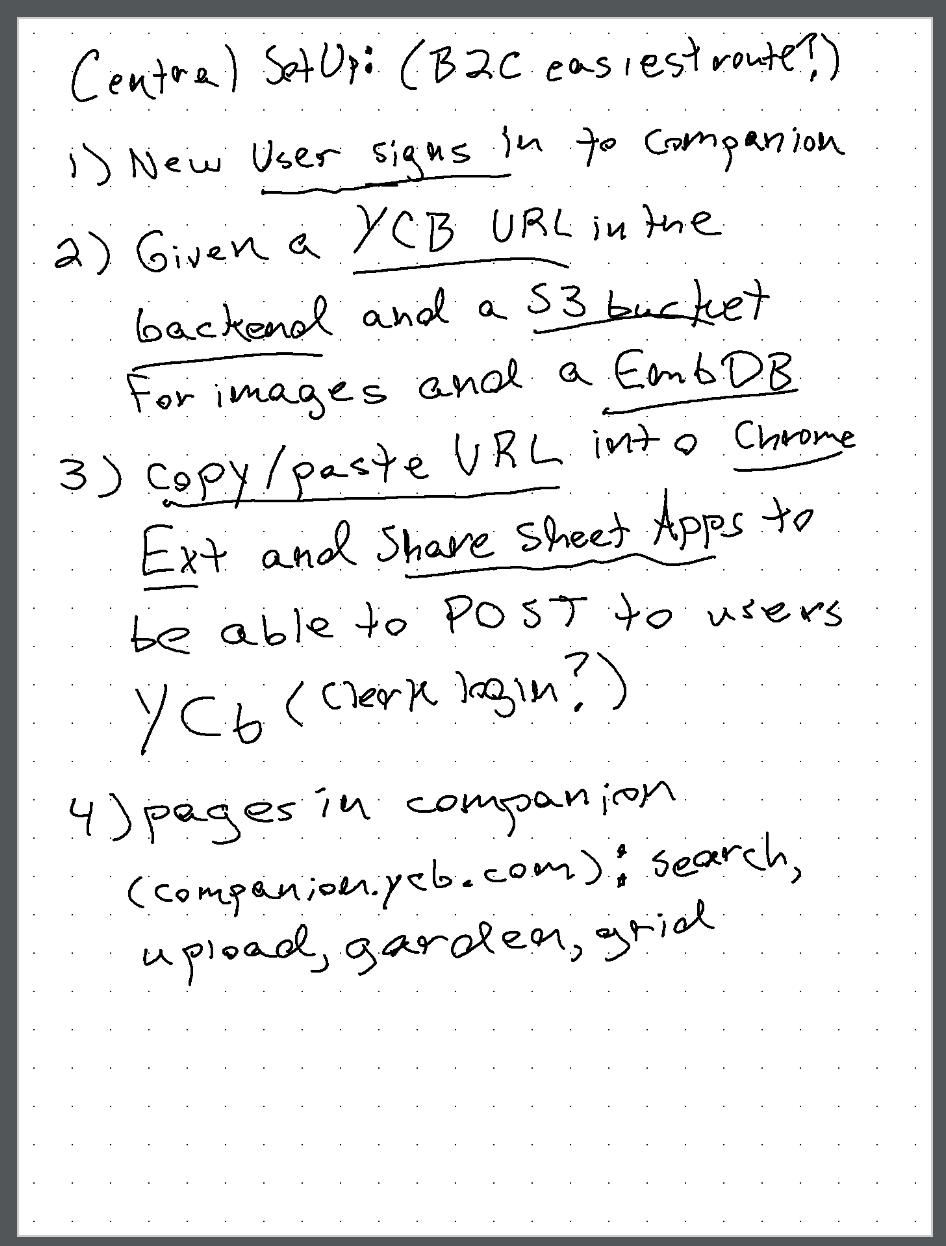 Central SetUp: (B2C easiest route?)
1) New User signs in to companion
2) Given a YCB URL in the
backend and a S3 bucket
For images and a EmbDB
3) Copy/paste URL into Chrome
Ext and Share Sheet Apps to
be able to POST to users
YCb (Clerk login?)
4) pages in companion
(companion.ycb.com): search,
upload, garden, grid